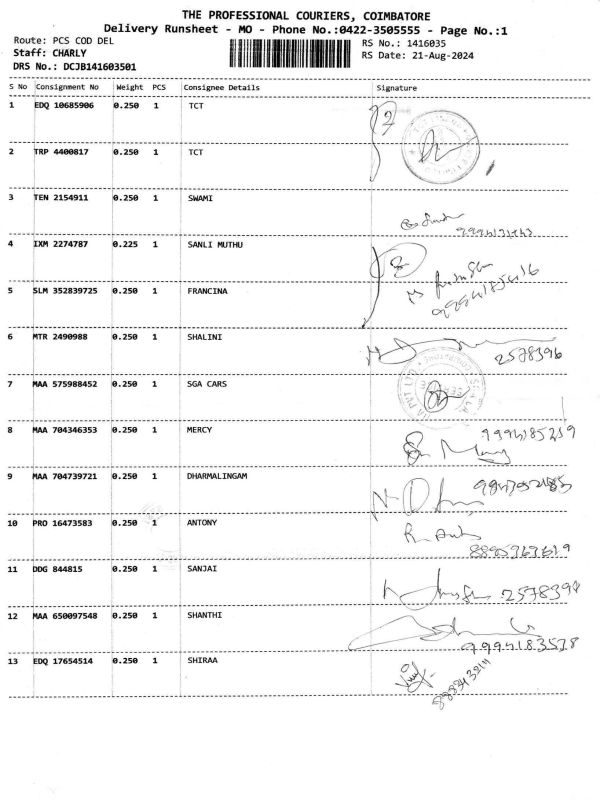 THE PROFESSIONAL COURIERS, COIMBATORE
Delivery Runsheet - MO - Phone No.:0422-3505555 - Page No.:1
Route: PCS COD DEL
RS No.: 1416035
Staff: CHARLY
RS Date: 21-Aug-2024
DRS No.: DCJB141603501
S No Consignment No Weight PCS Consignee Details Signature
1 EDQ 10685906 0.250 1 TCT
2 TRP 4400817 0.250 1 TCT
3 TEN 2154911 0.250 1 SWAMI
4 IXM 2274787 0.225 1 SANLI MUTHU
5 SLM 352839725 0.250 1 FRANCINA
6 MTR 2490988 0.250 1 SHALINI
2578396
7 MAA 575988452 0.250 1 SGA CARS
8 MAA 704346353 0.250 1 MERCY
9 MAA 704739721 0.250 1 DHARMALINGAM
10 PRO 16473583 0.250 1 ANTONY
11 DDG 844815 0.250 1 SANJAI
12 MAA 650097548 0.250 1 SHANTHI
13 EDQ 17654514 0.250 1 SHIRAA